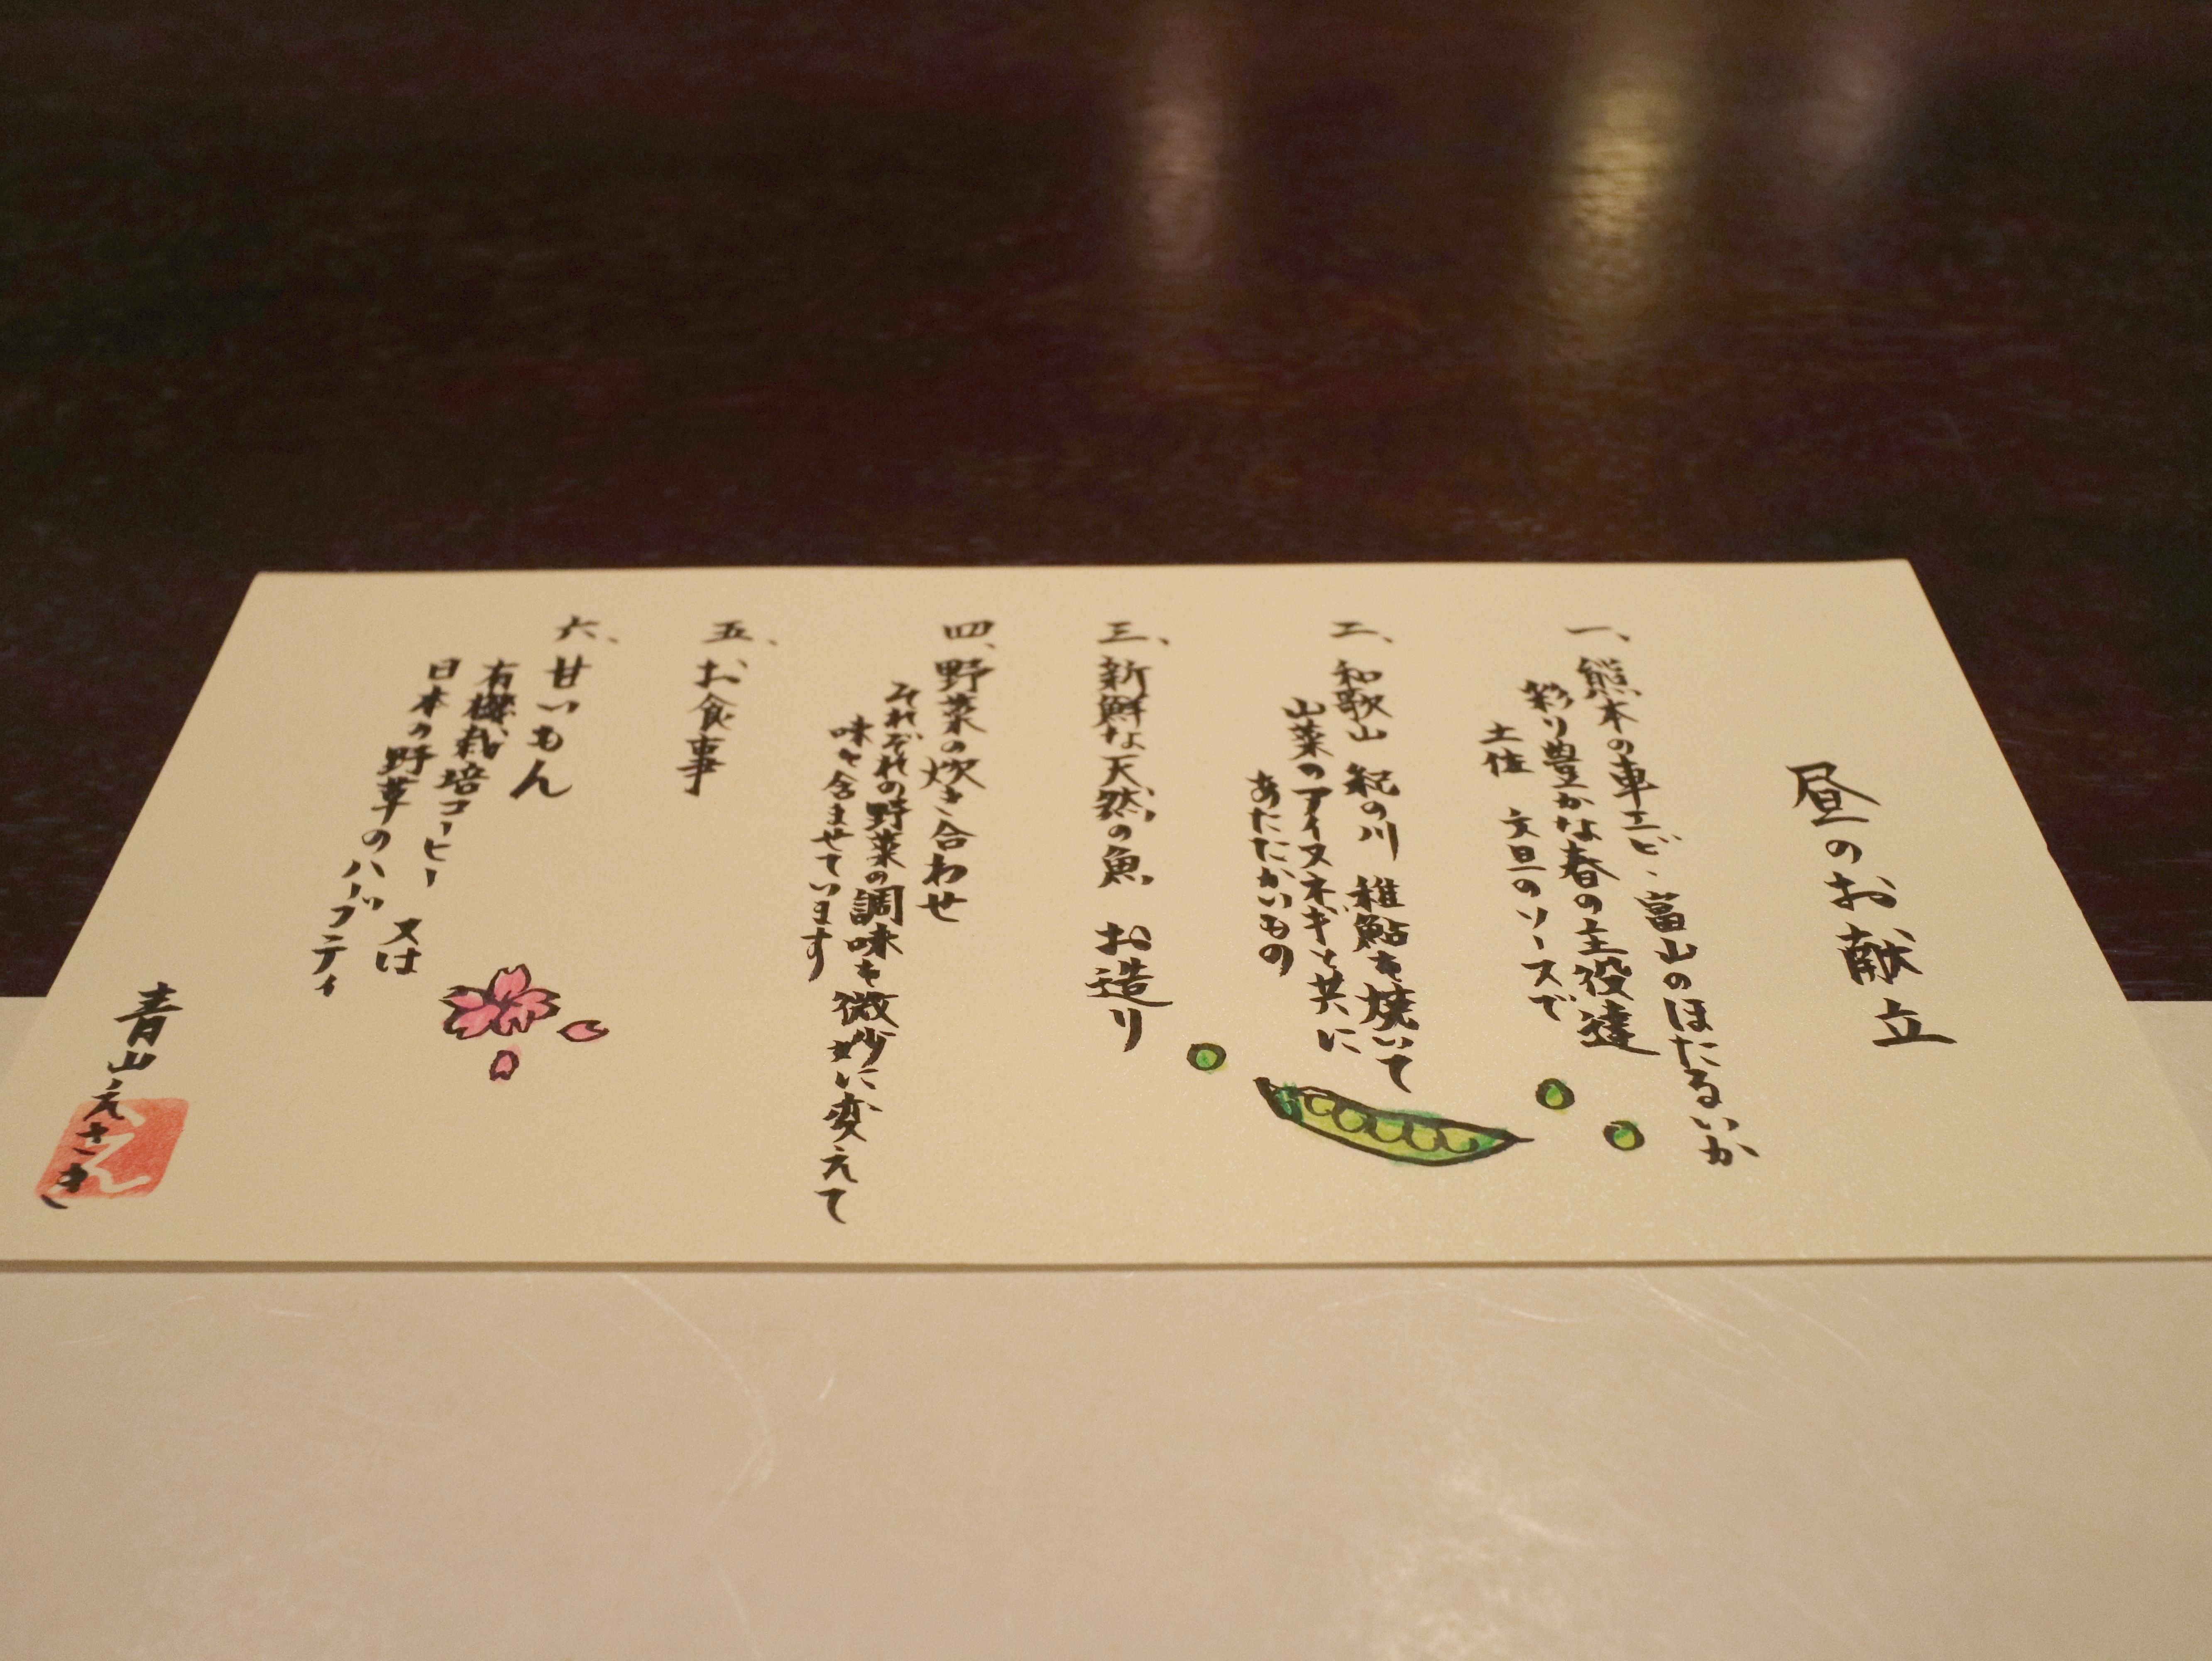 昼のお献立
一、熊本の車エビ、富山のほたるいか
彩り豊かな春の主役達
土佐 文旦のソースで
二、和歌山 紀の川 稚鮎を焼いて
山菜のアイヌネギと共に
あたたかいもの
三、新鮮な天然の魚 お造り
四、野菜の炊き合わせ
それぞれの野菜の調味を微妙に変えて
味を含ませています
五、お食事
六、甘いもん
有機栽培コーヒー 又は
日本の野草のハーブティ
青山えさき
え